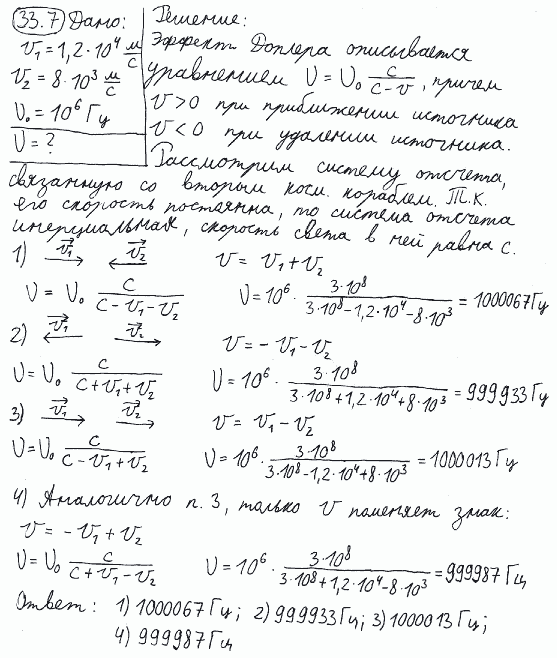 33.7 Дано:
υ₁ = 1,2·10⁴ м/с
υ₂ = 8·10³ м/с
υ₀ = 10⁶ Гц
υ = ?
Решение:
Эффект Доплера описывается
уравнением υ = υ₀ c/(c-v), причем
v>0 при приближении источника
v<0 при удалении источника.
Рассмотрим систему отсчета,
связанную со вторым косм. кораблем. Т.к.
его скорость постоянна, то система отсчета
инерциальная, скорость света в ней равна c.
1) v₁→ ←v₂ v = v₁ + v₂
υ = υ₀ c/(c-v₁-v₂) υ = 10⁶ · 3·10⁸/(3·10⁸-1,2·10⁴-8·10³) = 1000067 Гц
2) ←v₁ v₂→ v = -v₁-v₂
υ = υ₀ c/(c+v₁+v₂) υ = 10⁶ · 3·10⁸/(3·10⁸+1,2·10⁴+8·10³) = 999933 Гц
3) v₁→ v₂→ v = v₁-v₂
υ = υ₀ c/(c-v₁+v₂) υ = 10⁶ · 3·10⁸/(3·10⁸-1,2·10⁴+8·10³) = 1000013 Гц
4) Аналогично п. 3, только v поменяет знак:
v = -v₁+v₂
υ = υ₀ c/(c+v₁-v₂) υ = 10⁶ · 3·10⁸/(3·10⁸+1,2·10⁴-8·10³) = 999987 Гц
Ответ: 1) 1000067 Гц; 2) 999933 Гц; 3) 1000013 Гц;
4) 999987 Гц